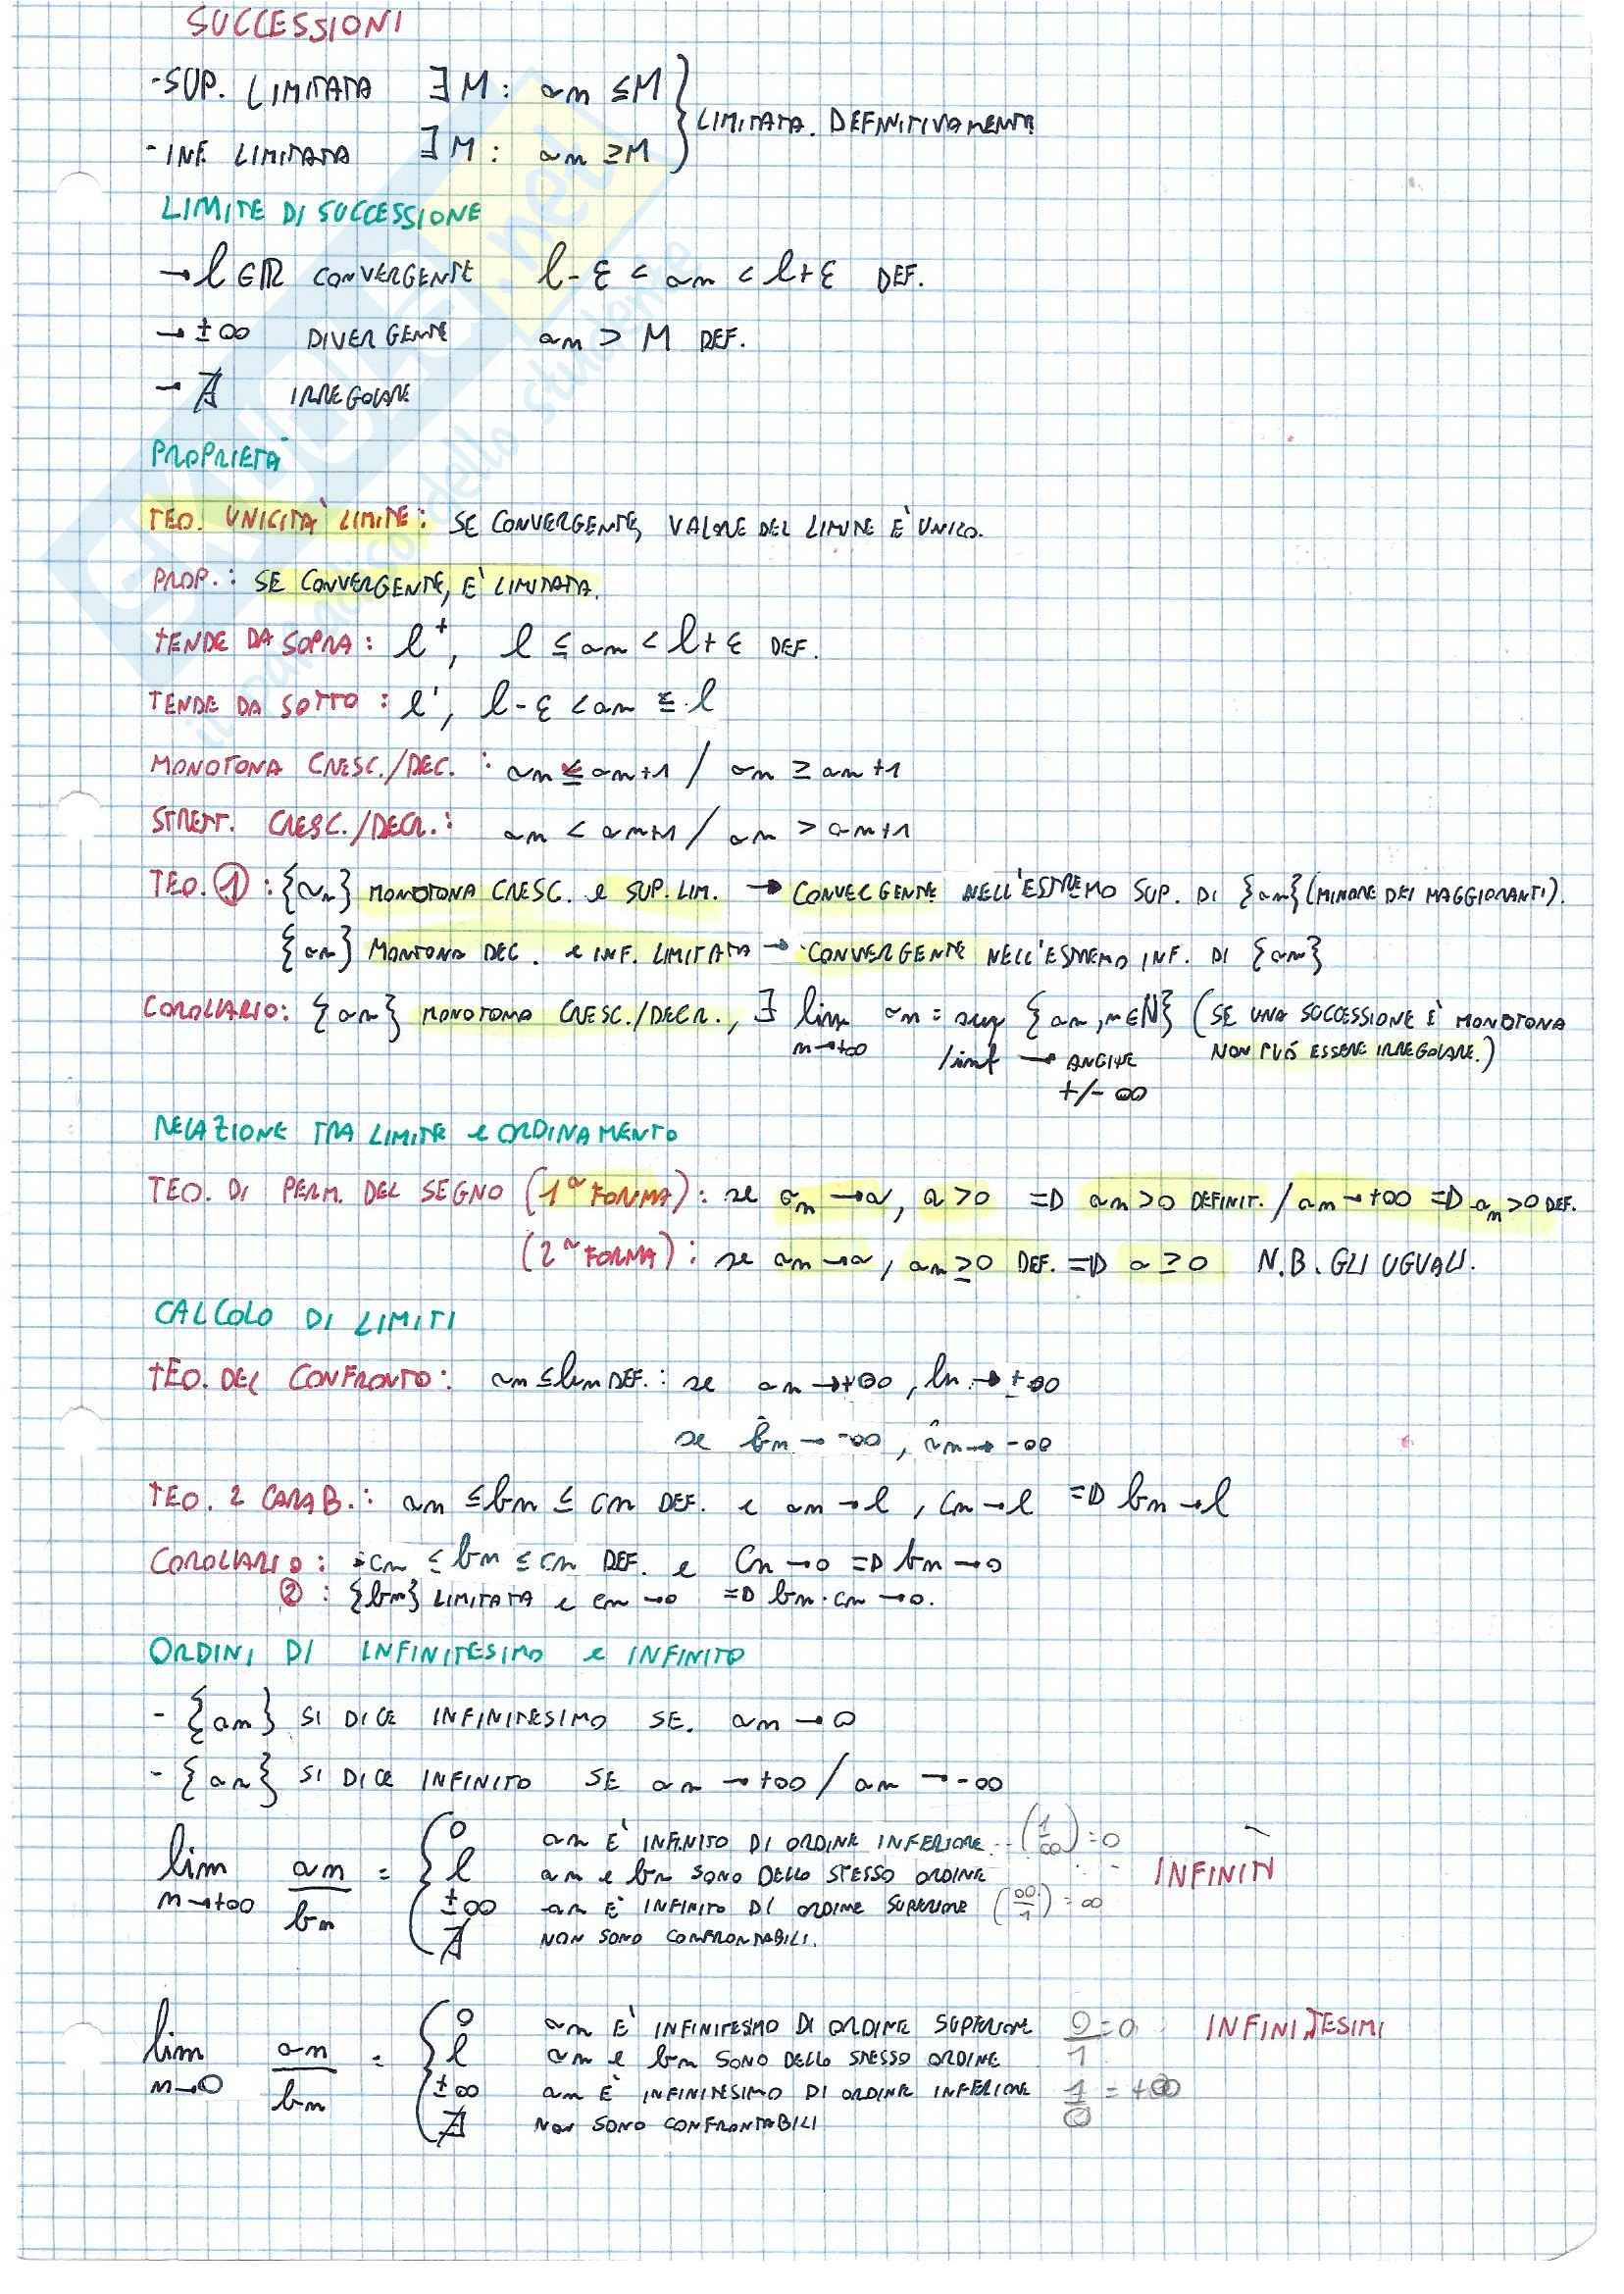 SUCCESSIONI
-SUP. LIMITATA ∃M: an ≤M
LIMITATA. DEFINITIVAMENTE
-INF. LIMITATA ∃M: an ≥M
LIMITE DI SUCCESSIONE
→ l∈ℝ CONVERGENTE l-ε < an < l+ε DEF.
→ ±∞ DIVERGENTE an > M DEF.
→ ∄ IRREGOLARE
PROPRIETÀ
TEO. UNICITA' LIMITE: SE CONVERGENTE, VALORE DEL LIMITE E' UNICO.
PROP.: SE CONVERGENTE, E' LIMITATA.
TENDE DA SOPRA: l⁺, l ≤ an < l+ε DEF.
TENDE DA SOTTO: l', l-ε < an ≤ l
MONOTONA CRESC./DEC. : an ≤ an+1 / an ≥ an+1
STRETT. CRESC./DECR.: an < an+1 / an > an+1
TEO. ① : {an} MONOTONA CRESC. e SUP. LIM. → CONVERGENTE NELL'ESTREMO SUP. DI {an} (MINORE DEI MAGGIORANTI).
{an} MONTONA DEC. e INF. LIMITATA → CONVERGENTE NELL'ESTREMO INF. DI {an}
COROLLARIO: {an} MONOTONA CRESC./DECR., ∃ lim an = sup {an, n∈N} (SE UNA SUCCESSIONE È MONOTONA
n→+∞ /inf → ANCHE NON PUÒ ESSERE IRREGOLARE.)
+/- ∞
RELAZIONE TRA LIMITE e ORDINAMENTO
TEO. DI PERM. DEL SEGNO (1ª FORMA): se an → a, a>0 => an>0 DEFINIT. / an → +∞ => an>0 DEF.
(2ª FORMA): se an → a, an≥0 DEF. => a≥0 N.B. GLI UGUALI.
CALCOLO DI LIMITI
TEO. DEL CONFRONTO: an ≤ bn DEF.: se an → +∞, bn → +∞
se bn → -∞, an → -∞
TEO. 2 CARAB.: an ≤ bn ≤ cn DEF. e an → l, cn → l => bn → l
COROLLARIO: -cn ≤ bn ≤ cn DEF. e cn → 0 => bn → 0
② : {bn} LIMITATA e cn → 0 => bn·cn → 0.
ORDINI DI INFINITESIMO e INFINITO
- {an} SI DICE INFINITESIMO SE. an → 0
- {an} SI DICE INFINITO SE an → +∞ / an → -∞
0 an E' INFINITO DI ORDINE INFERIORE (1/∞)=0
lim an/bn = l an e bn SONO DELLO STESSO ORDINE INFINITI
n→+∞ ±∞ an E' INFINITO DI ORDINE SUPERIORE (∞/1)=∞
∄ NON SONO CONFRONTABILI.
0 an E' INFINITESIMO DI ORDINE SUPERIORE 0/1=0 INFINITESIMI
lim an/bn = l an e bn SONO DELLO STESSO ORDINE
n→0 ±∞ an E' INFINITESIMO DI ORDINE INFERIORE 1/0=+∞
∄ NON SONO CONFRONTABILI